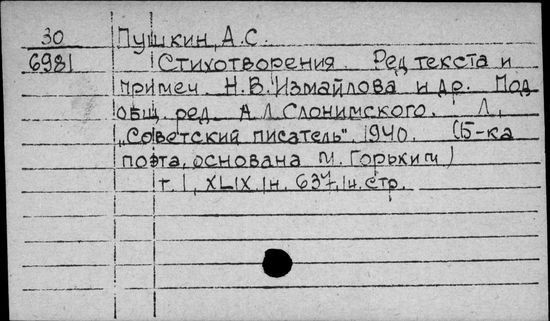 30 Пушкин, А.С.
6981 Стихотворения. Ред. текста и
примеч. Н.В. Измайлова и др. Под
общ. ред. А.Л. Слонимского. Л.,
"Советский писатель", 1940. (Б-ка
поэта, основана М. Горьким)
т. I, XLIX, 1н. 637, 1н. стр.